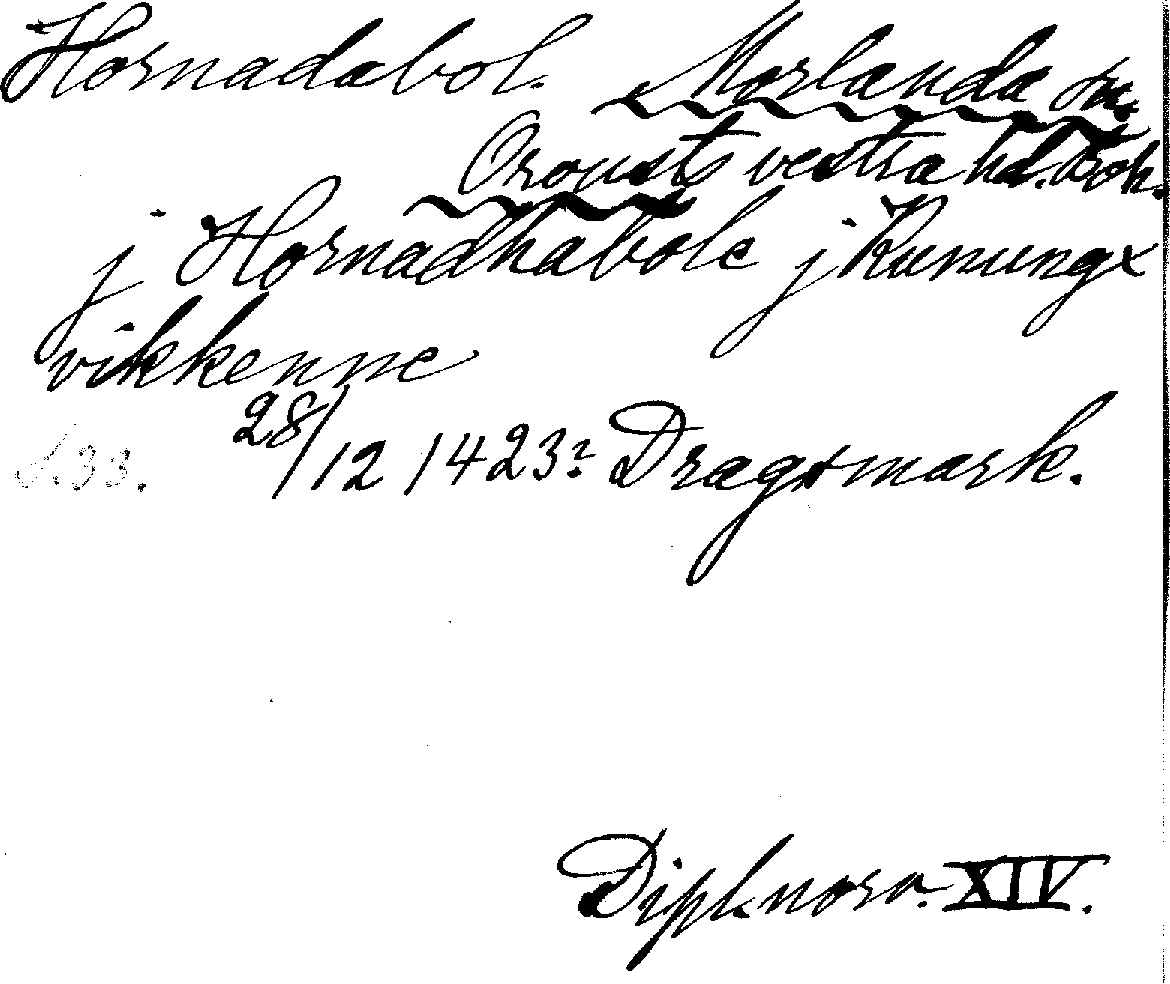 Hornadabol. Morlanda sn.
Orousts vestra hd. Boh.
j Hornadhabole j Kunungx
vikkenne
s.33. 28/12 1423? Dragsmark.
Dipl. norv. XIV.